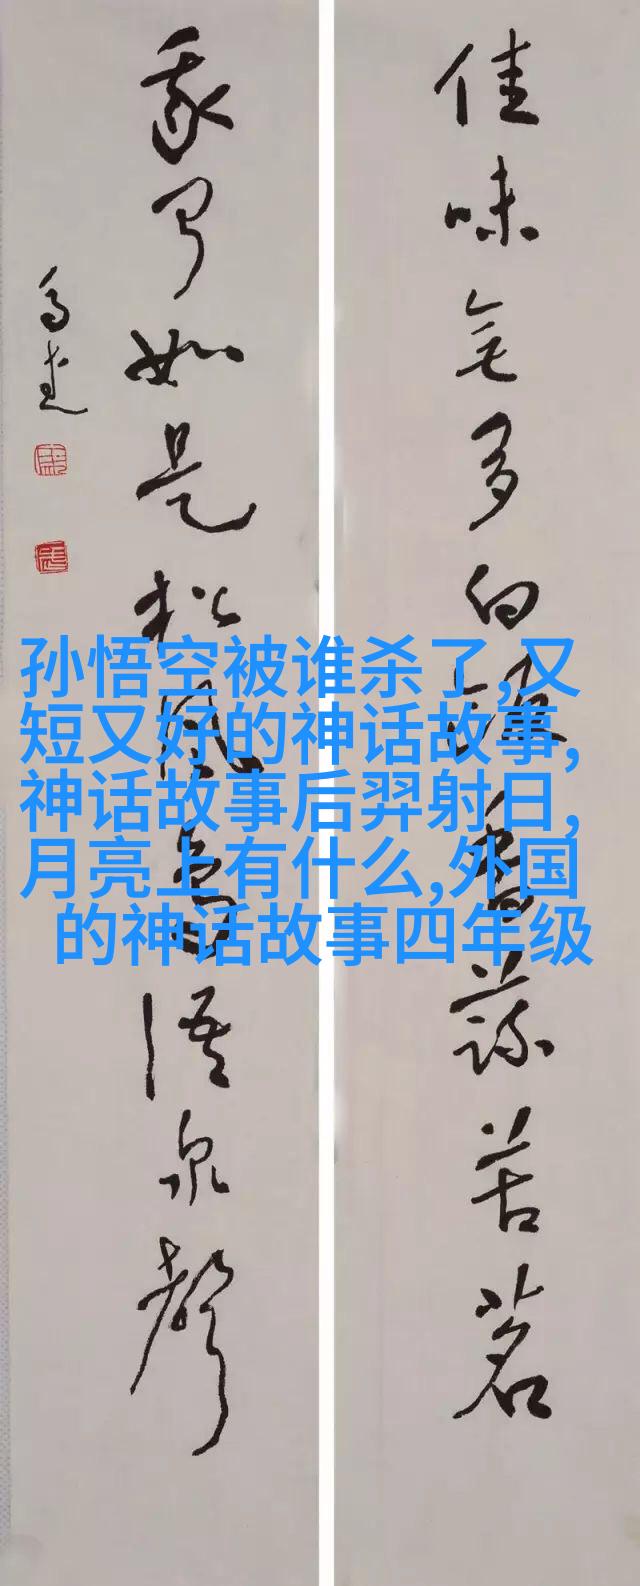 佳味無多白飯香蔬苦茗
我聞如是松風鳥語泉聲
孙悟空被谁杀了,又
短又好的神话故事,
神话故事后羿射日,
月亮上有什么,外国
的神话故事四年级